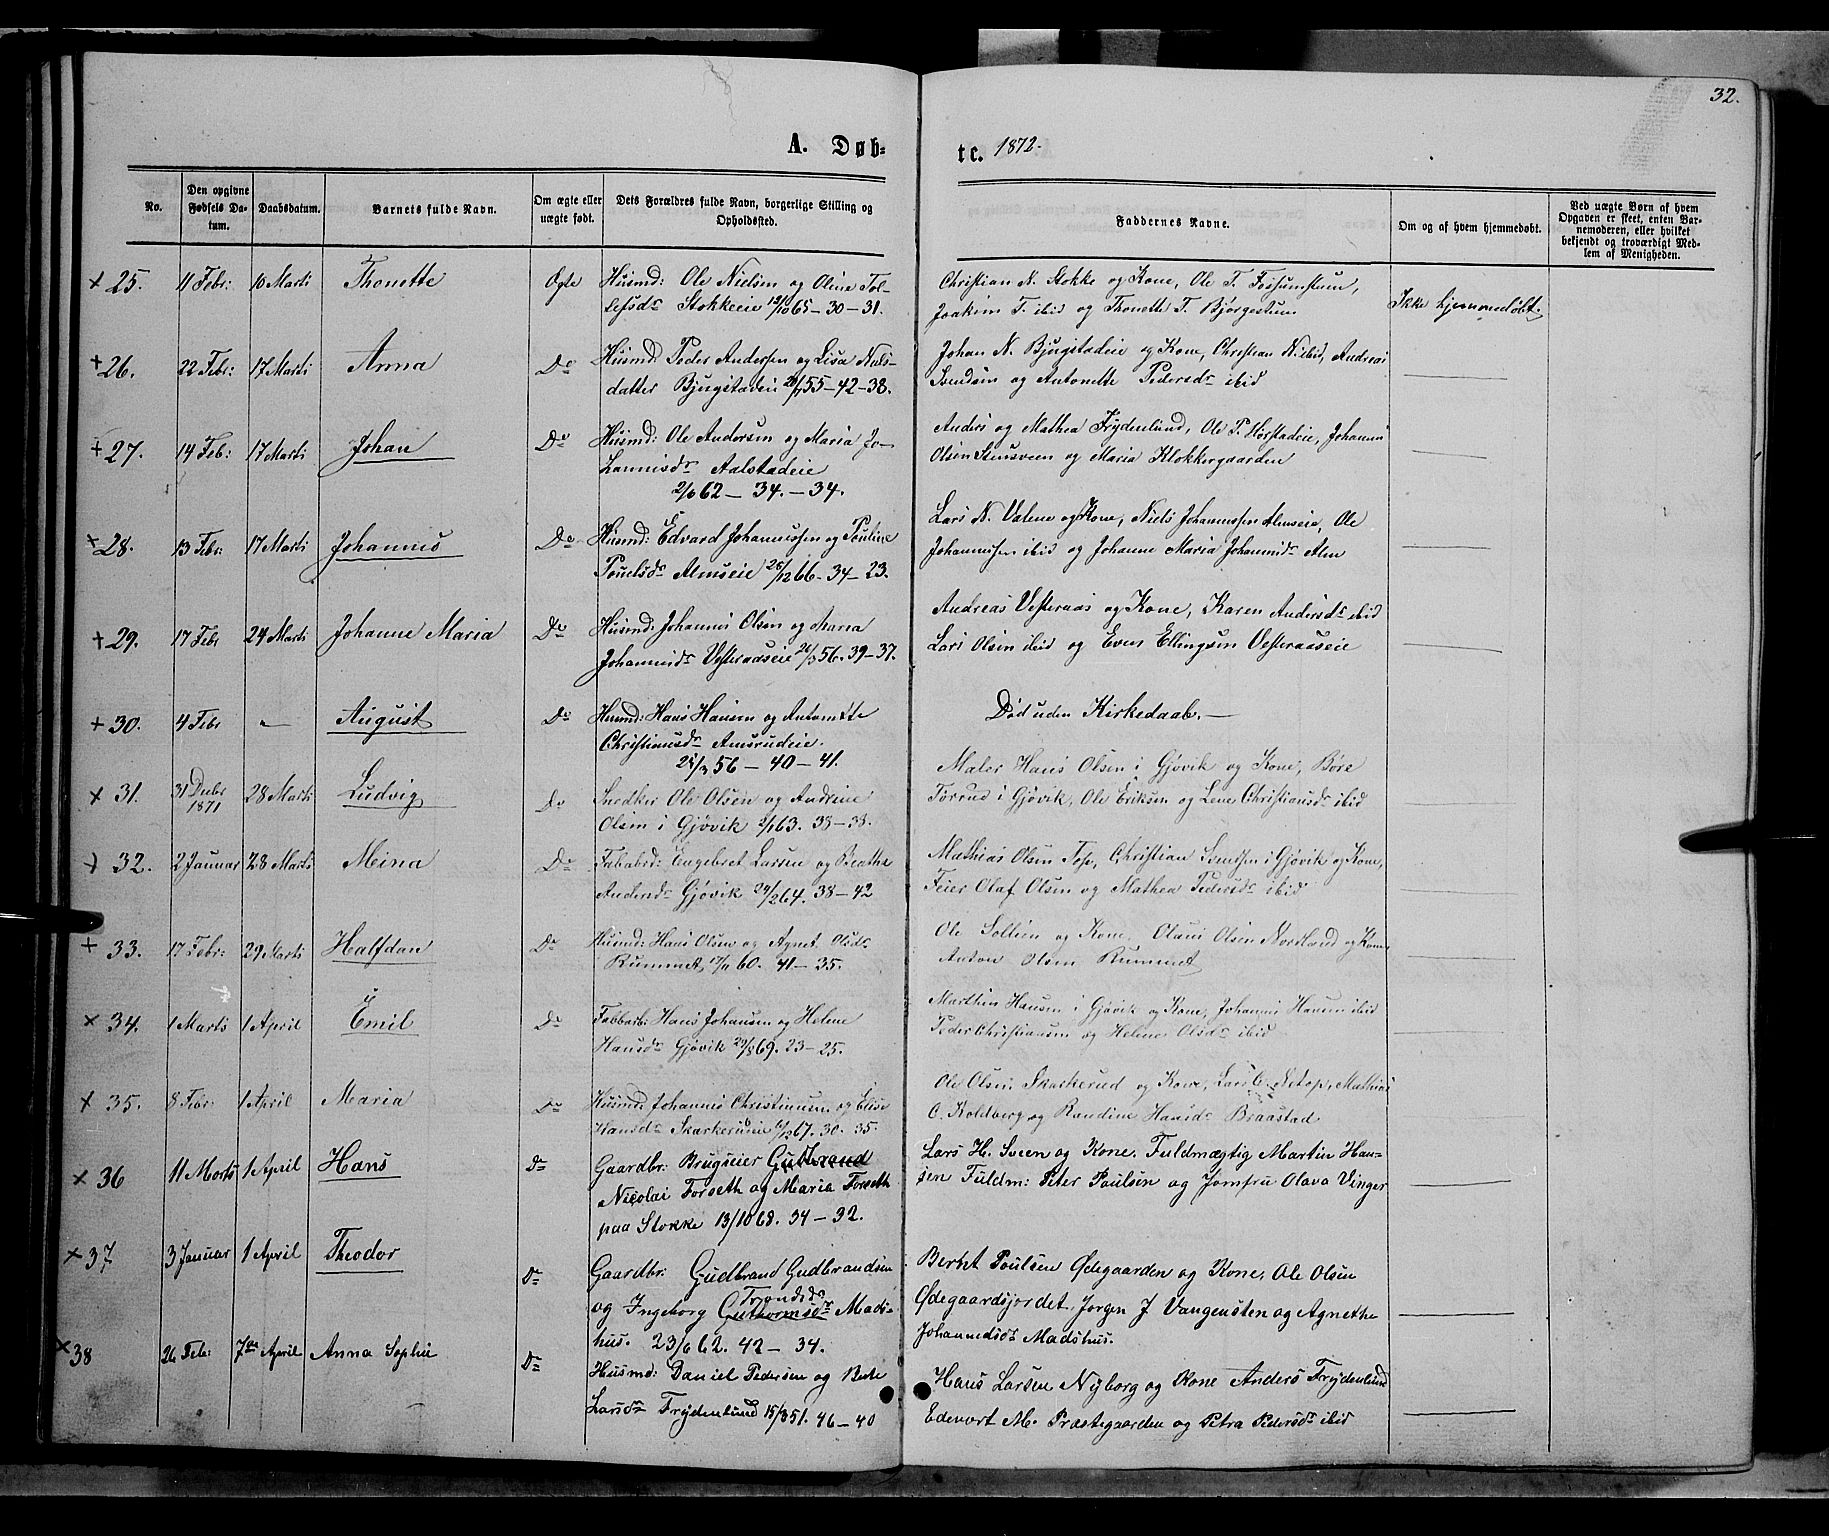 32.
A. Døb-
te. 1872.
No.
Den opgivne Fødsels Datum.
Daabsdatum.
Barnets fulde Navn.
Om ægte eller uægte født.
Dets Forældres fulde Navn, borgerlige Stilling og Opholdssted.
Faddernes Navne.
Om og af hvem hjemmedøbt.
Ved uægte Børn af hvem Opgaven er skeet, enten Barnemoderen, eller hvilket bekjendt og troværdigt Medlem af Menigheden.
+ 25. 11 Febr: 10 Marti Thonette Ægte Husmd: Ole Nielsen og Oline Tol-
lefsdr Stokkeeie 12/10 65 - 30 - 31.
Christian N. Stokke og Kone, Ole T. Fossumstuen,
Joakim T. ibid og Thonette T. Bjørgestuen
Ikke hjemmedøbt.
+ 26. 22 Febr: 17 Marti Anna Do Husmd: Peder Andersen og Lisa Niels-
datter Bjugstadeie 55 - 42 - 38.
Johan N. Bjugstadeie og Kone, Christian N. ibid, Andreas
Svendsen og Antonette Pedersdr ibid
+ 27. 14 Feb: 17 Marti Johan Do Husmd: Ole Andersen og Maria Jo-
hannisdr Aalstadeie
2/6 62 - 34. - 34.
Anders og Mathea Frydenlund, Ole P. Hørstadeie, Johannes
Olsen Stensveen og Maria Klokkergaarden
+ 28. 13 Febr: 17 Marti Johannes Do Husmd: Edvard Johannessen og Pouline
Pouelsdr Almseie 26/12 66 - 34 - 23.
Lars N. Valene og Kone, Niels Johannessen Almseie, Ole
Johannessen ibid og Johanne Maria Johannisdr Alm
+ 29. 17 Febr 24 Marti Johanne Maria Do Husmd: Johannes Olsen og Maria
Johannisdr Vesteraaseie 56. 39 - 37.
Andreas Vesteraas og Kone, Karen Andersdr ibid
Lars Olsen ibid og Even Ellingsen Vesteraaseie
+ 30. 4 Febr - August Do Husmd: Hans Hansen og Antonette
Christiansdr Amsrudeie.
56 - 40 - 41.
Død uden Kirkedaab. -
+ 31. 31 Decbr 1871 28 Marti Ludvig Do Snedker Ole Olsen og Andrine
Olsen i Gjøvik 2/1 63. 38 - 38.
Maler Hans Olsen i Gjøvik og Kone, Børe
Torrud i Gjøvik, Ole Eriksen og Lene Christiansdr ibid
+ 32. 2 Januar 28 Marts Meina Do Fababrd: Engebret Larsen og Beathe
Andersdr Gjøvik 29/12 64. 38 - 42
Mathias Olsen Tose, Christian Svendsen i Gjøvik og Kone,
Feier Olaf Olsen og Mathea Pedersdr ibid
+ 33. 17 Febr: 29 Marts Halfdan Do Husmd: Hans Olsen og Agnet. Olsdr
Rummet, 60. 41 - 35.
Ole Sollien og Kone, Olaus Olsen Nordland og Kone
Anton Olsen Rummet
+ 34. 1 Marts 1 April Emil Do Fabbarb: Hans Johansen og Helene
Hansdr Gjøvik 29/8 69. 23 - 25.
Marthin Hansen i Gjøvik og Kone, Johannes Hansen ibid
Peder Christiansen og Helene Olsdr ibid
+ 35. 8 Febr 1 April Maria Do Husmd: Johannes Christiansen og Elise
Hansdr Skarkerudeie 67. 30. 35.
Ole Olsen Skarkerud og Kone, Lars C. Netop, Mathias
C. Koldberg og Randine Hansdr Braastad
+ 36 11 Marts 1 April Hans Do Gaardbr: Brugseier Gudbrand
Nicolai Forseth og Maria Forseth
paa Stokke 13/10 68. 34 - 32.
Lars H. Sveen og Kone, Fuldmægtig Martin Han-
sen Fuldm: Peter Poulsen og Jomfru Olava Vinger
+ 37 3 Januar 1 April Theodor Do Gaardbr: Gudbrand Gudbrandsen
Trondsdr
og Ingeborg Guthormsdr Mads-
hus. 23/6 62. 42 - 34.
Bernt Poulsen Ødegaarden og Kone, Ole Olsen
Ødegaardsjordet, Jørgen J Vangensten og Agnethe
Johannesdr Madshus.
+ 38 26 Feb: 7de April Anna Sophie Do Husmd: Daniel Pedersen og Berte
Larsdr Frydenlund 15/3 51. 46 - 40
Hans Larsen Nyborg og Kone Anders Frydenlund
Edevart M. Præstegaarden og Petra Pedersdr ibid